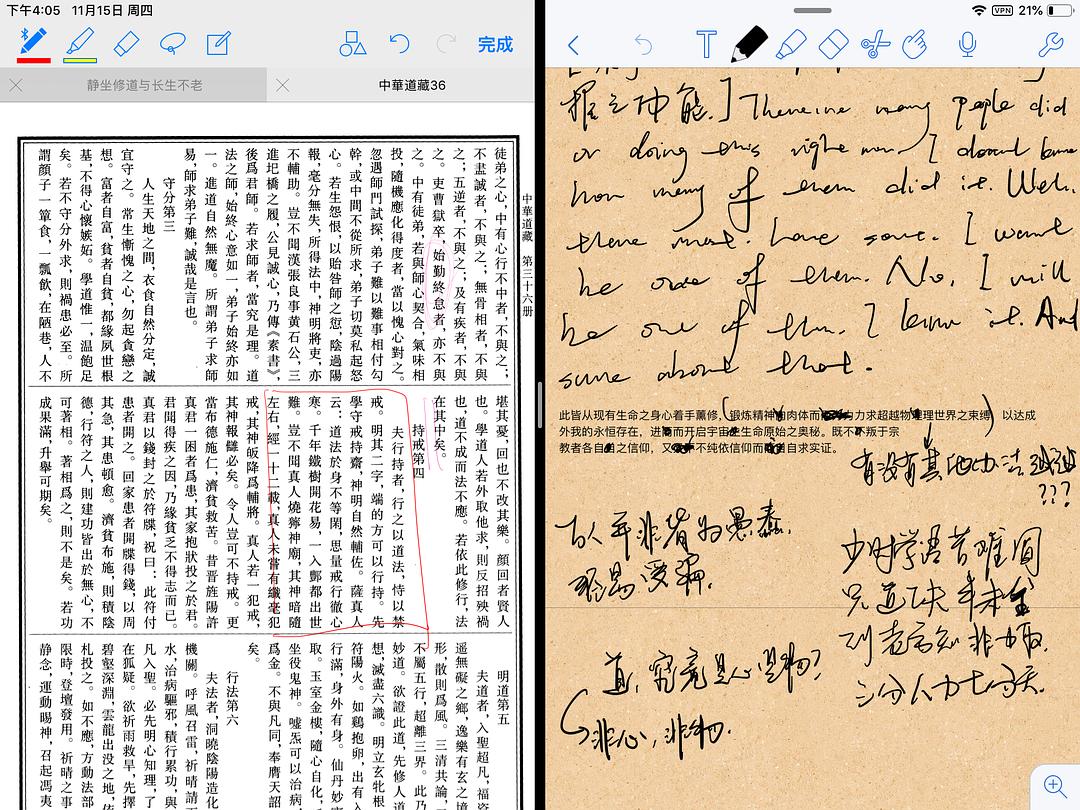 下午4:05 11月15日 周四
VPN 21%
完成
静坐修道与长生不老
中華道藏36
中華道藏 第三十六册
徒弟之心，中有心行不中者，不與之；
不盡誠者，不與之；無骨相者，不與
之；五逆者，不與之；及有疾者，不與
之。吏曹獄卒，始勤終怠者，亦不與
之。中有徒弟，若與師心契合，氣味相
投，隨機應化得度者，當以愧心對之。
忽遇師門試探，弟子難以難事相付勾
幹，或中間不從所求，弟子切莫私起怒
心。若生怨恨，以貽咎師之愆，陰過陽
報，毫分無失，所得法中，神明將吏，亦
不輔助。豈不聞漢張良事黃石公，三
進圯橋之履，公見誠心，乃傳《素書》，
後爲君師。若求師者，當究是理。道
法之師，始終心意如一，弟子始終亦如
一。進道自然無魔。所謂弟子求師
易，師求弟子難，誠哉是言也。
守分第三
人生天地之間，衣食自然分定，誠
宜守之。常生慚愧之心，勿起貪戀之
想。富者自富，貧者自貧，都緣夙世根
基，不得心懷嫉妬。學道惟一，温飽足
矣。若不守分外求，則禍患必至。所
謂顏子一簞食，一瓢飲，在陋巷，人不
堪其憂，回也不改其樂。顏回者賢人
也。學道人若外取他求，則反招殃禍
也，道不成而法不應。若依此修行，法
在其中矣。
持戒第四
夫行持者，行之以道法，恃以禁
戒。明其二字，端的方可以行持。先
學守戒持齋，神明自然輔佐。薩真人
云：道法於身不等閑，思量戒行徹心
寒。千年鐵樹開花易，一入酆都出世
難。豈不聞真人燒獰神廟，其神暗隨
左右，經一十二載，真人未嘗有纖毫犯
戒，其神皈降爲輔將。真人若一犯戒，
其神報讎必矣。令人豈可不持戒。更
當布德施仁，濟貧救苦。昔晋旌陽許
真君一困者爲患，其家抱狀投之於君。
君聞得疾之因，乃緣貧乏不得志而已。
真君以錢封之於符牒，祝曰：此符付
患者開之。回家患者開牒得錢，以周
其急，其患頓愈。濟貧布施，則積陰
德，行符之人，則建功皆出於無心，不
可著相。著相爲之，則不是矣。若功
成果滿，升舉可期矣。
明道第五
夫道者，入聖超凡，福資
遥無礙之鄉，逸樂有玄之境
形，散則爲風。三清共論，一
不屬五行，超離三界。此乃
妙道。欲證此道，先修人道
想，滅盡六識。明立玄牝根
符陽火。如鷄抱卵，出有入
行滿，身外有身。仙丹妙
取。玉室金樓，隨心自化，
坐役鬼神。嘘炁可以治病，
爲金。不與凡同，奉膺天詔
矣。
行法第六
夫法者，洞曉陰陽造化
機關。呼風召雷，祈晴請
水，治病驅邪，積行累功，與
凡入聖。必先明心知理，了
在狐疑。欲祈雨救旱，先擇
碧壑深淵，雲龍出没之地，
札投之。如不應，方動法部
限時，登壇發用。祈晴之事
静念，運動暘神，召起馮夷
功能.] There're many people did
or doing this right now. I doesn't know
how many of them did it. Well.
there must have some. I want
be one of them. No, I will
be one of them. I know it. And
sure about that.
此皆从现有生命之身心着手薰修，(锻炼精神 肉体而 力求超越物理世界之束缚)，以达成
外我的永恒存在，进而开启宇宙生命原始之奥秘。既不叛于宗
教者各自之信仰，又不纯依信仰而自求实证。
有没有其他办法
???
古人年非者为愚
少时学语苦难圆
只道工夫半未全
到老方知非力取
三分人力七分天.
道，究竟是心是物?
非心，非物.